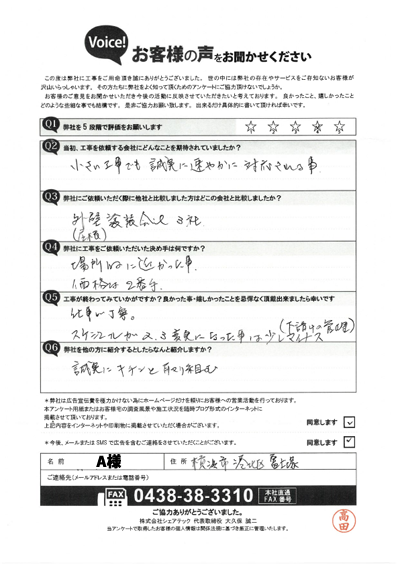 Voice!
お客様の声をお聞かせください
この度は弊社に工事をご用命頂き誠にありがとうございました。世の中には弊社の存在やサービスをご存知ないお客様が
沢山いらっしゃいます。その方たちに弊社をよく知って頂くためのアンケートにご協力頂けないでしょうか。
お客様のご意見をお聞かせいただき今後の活動に反映させていただきたいと考えております。良かったこと、嬉しかったこと
どのような些細な事でも結構です。是非ご協力お願い致します。出来るだけ具体的に書いて頂ければ幸いです。
Q1 弊社を5段階で評価をお願いします ☆ ☆ ☆ ☆ ☆
Q2 当初、工事を依頼する会社にどんなことを期待されていましたか？
小さい工事でも誠実に速やかに対応される事
Q3 弊社にご依頼いただく際に他社と比較しました方はどこの会社と比較しましたか？
外壁塗装会社 3社
(屋根)
Q4 弊社に工事をご依頼いただいた決め手は何ですか？
場所的に近かった事
価格は2番手
Q5 工事が終わってみていかがですか？良かった事・嬉しかったことを忌憚なく頂戴出来ましたら幸いです
仕事は丁寧。
スケジュールが2、3変更になった事は少しマイナス
(下請けの管理)
Q6 弊社を他の方に紹介するとしたらなんと紹介しますか？
誠実にキチンと取り組む
＊弊社は広告宣伝費を極力かけない為にホームページだけを頼りにお客様への営業活動を行っております。
本アンケート用紙またはお客様宅の調査風景や施工状況を随時ブログ形式のインターネットに
掲載させて頂いております。
上記内容をインターネットや印刷物に掲載させていただく場合がございます。 同意します ✓
＊今後、メールまたは SMS で広告を含むご連絡をさせていただくことがございます。 同意します ✓
名前 A様 住所 横浜市港北区富士塚
ご連絡先(メールアドレスまたは電話番号)
FAX 0438-38-3310 本社直通 FAX番号
ご協力ありがとうございました。
株式会社シェアテック 代表取締役 大久保 誠二
当アンケートで取得したお客様の個人情報は関係法規に基づき厳正に管理いたします。
高田